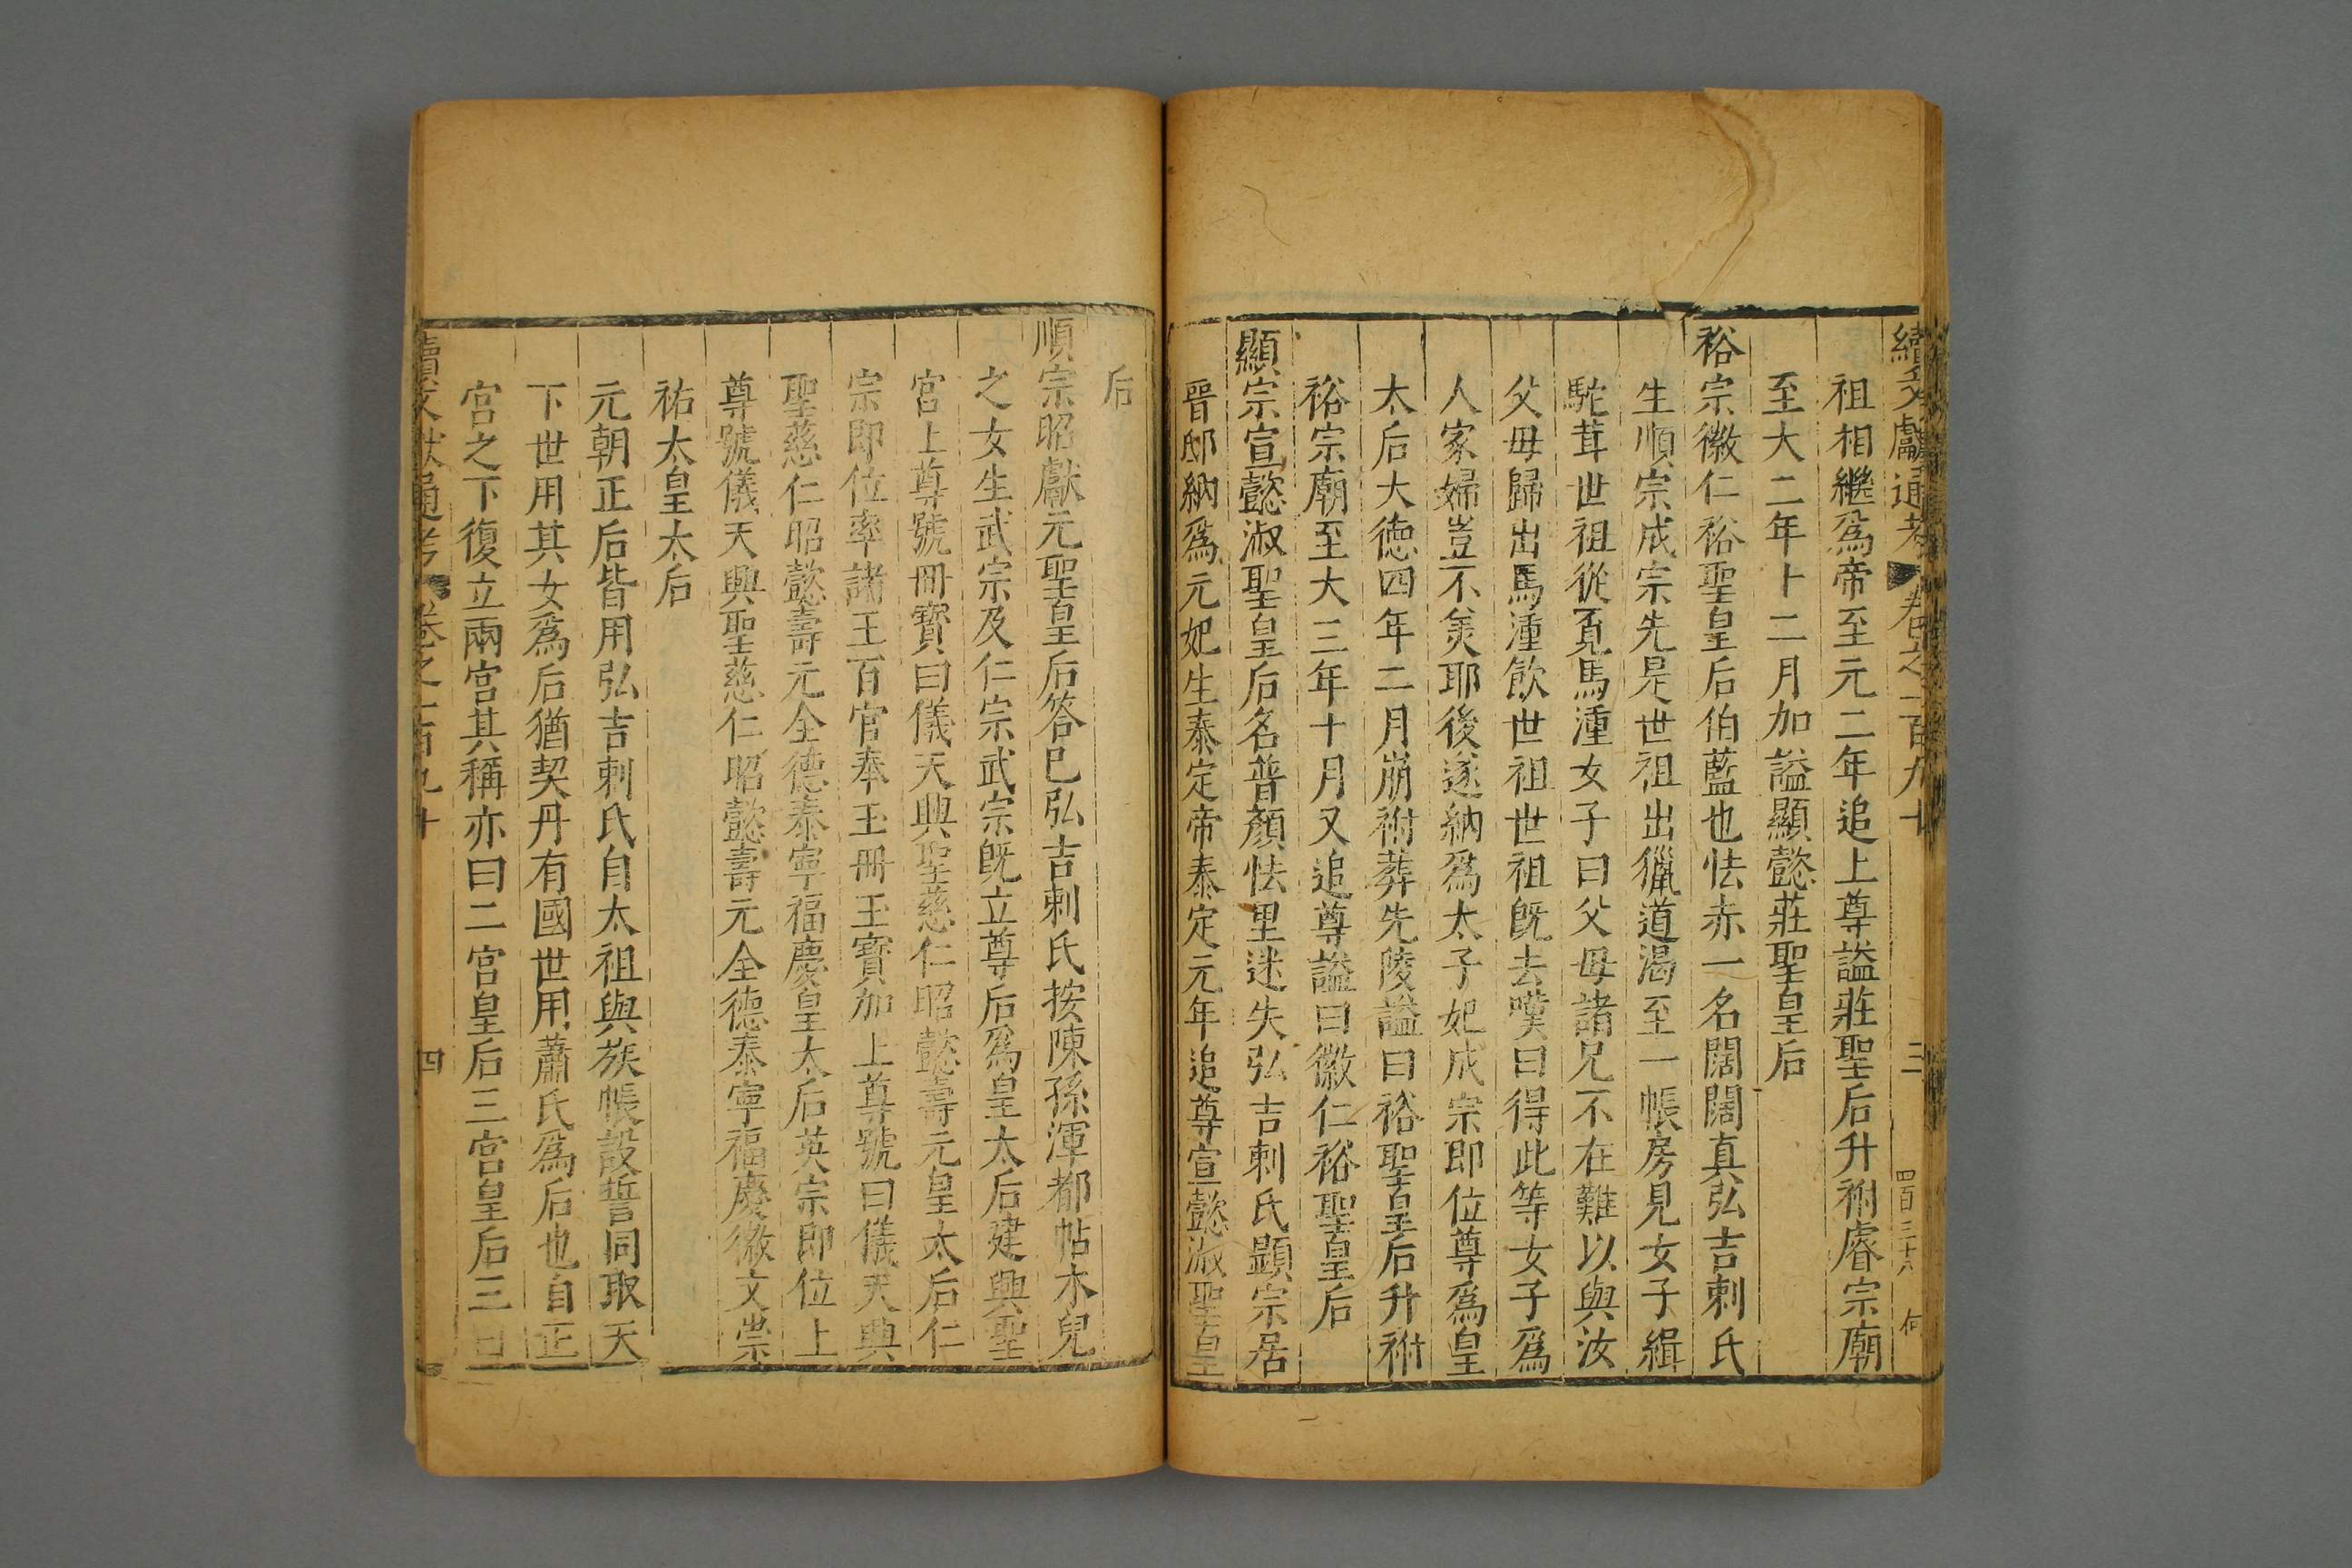 續文獻通考 卷之一百九十 三 四百三十八 何
祖相繼爲帝至元二年追上尊謚莊聖后升祔睿宗廟
至大二年十二月加謚顯懿莊聖皇后
裕宗徽仁裕聖皇后伯藍也怯赤一名闊闊真弘吉剌氏
生順宗成宗先是世祖出獵道渴至一帳房見女子緝
駝茸世祖從覓馬湩女子曰父母諸兄不在難以與汝
父母歸出馬湩飲世祖世祖旣去嘆曰得此等女子爲
人家婦豈不羙耶後遂納爲太子妃成宗即位尊爲皇
太后大德四年二月崩祔葬先陵謚曰裕聖皇后升祔
裕宗廟至大三年十月又追尊謚曰徽仁裕聖皇后
顯宗宣懿淑聖皇后名普顏怯里迷失弘吉剌氏顯宗居
晉邸納爲元妃生泰定帝泰定元年追尊宣懿淑聖皇
后
順宗昭獻元聖皇后答巳弘吉剌氏按陳孫渾都帖木兒
之女生武宗及仁宗武宗旣立尊后爲皇太后建興聖
宮上尊號冊寶曰儀天興聖慈仁昭懿壽元皇太后仁
宗即位率諸王百官奉玉冊玉寶加上尊號曰儀天興
聖慈仁昭懿壽元全德泰寧福慶皇太后英宗即位上
尊號儀天興聖慈仁昭懿壽元全德泰寧福慶徽文崇
祐太皇太后
元朝正后皆用弘吉剌氏自太祖與族帳設誓同取天
下世用其女爲后猶契丹有國世用蕭氏爲后也自正
宮之下復立兩宮其稱亦曰二宮皇后三宮皇后三曰
續文獻通考 卷之一百九十 四